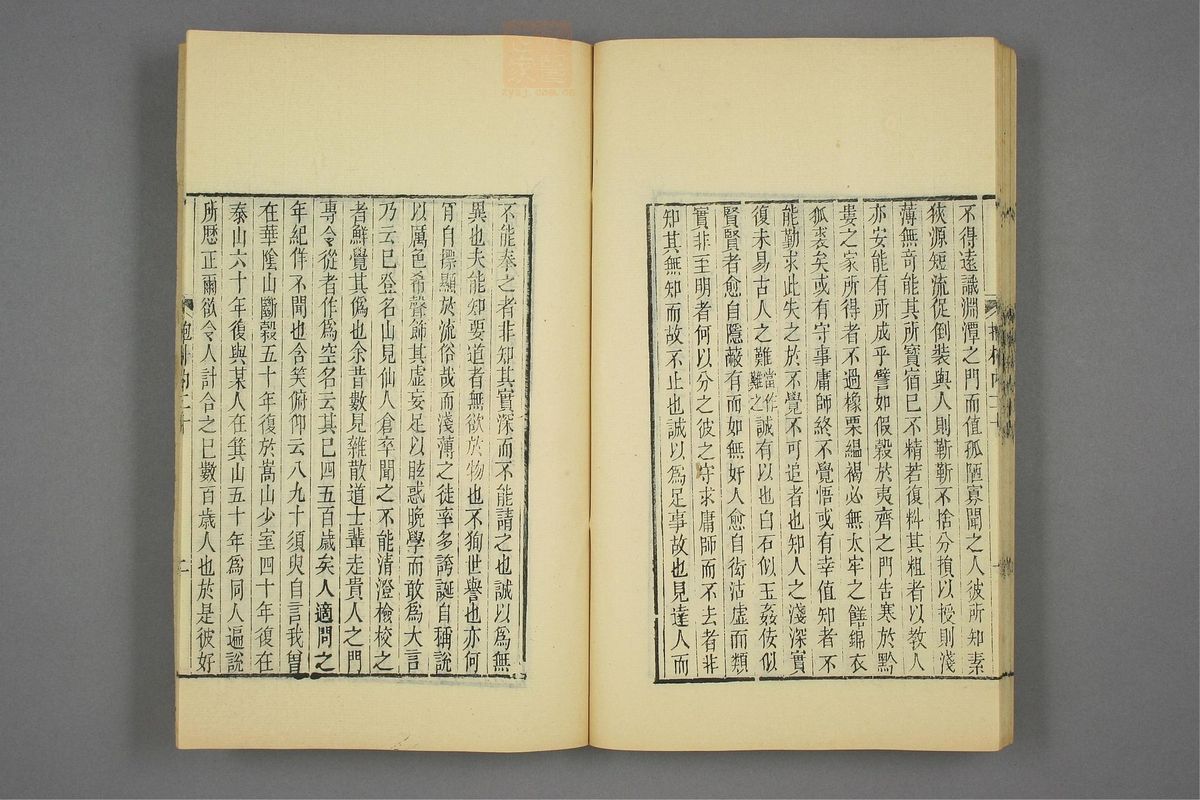 不得遠識淵潭之門而值孤陋寡聞之人彼所知素
狹源短流促倒裝與人則靳靳不捨分損以授則淺
薄無奇能其所寶宿已不精若復料其粗者以教人
亦安能有所成乎譬如假穀於夷齊之門告寒於黔
婁之家所得者不過橡栗縕褐必無太牢之饍錦衣
狐裘矣或有守事庸師終不覺悟或有幸值知者不
能勤求此失之於不覺不可追者也知人之淺深實
復未易古人之難當作難之誠有以也白石似玉姦佞似
賢賢者愈自隱蔽有而如無奸人愈自衒沽虛而類
實非至明者何以分之彼之守求庸師而不去者非
知其無知而故不止也誠以為足事故也見達人而
不能奉之者非知其實深而不能請之也誠以為無
異也夫能知要道者無欲於物也不狥世譽也亦何
肎自摽顯於流俗哉而淺薄之徒率多誇誕自稱說
以厲色希聲飾其虛妄足以眩惑晚學而敢為大言
乃云已登名山見仙人倉卒聞之不能清澄檢校之
者鮮覺其偽也余昔數見雜散道士輩走貴人之門
專令從者作為空名云其已四五百歲矣人適問之
年紀佯不聞也含笑俯仰云八九十須臾自言我曾
在華陰山斷穀五十年復於嵩山少室四十年復在
泰山六十年復與某人在箕山五十年為同人遍說
所歷正爾欲令人計合之已數百歲人也於是彼好
二